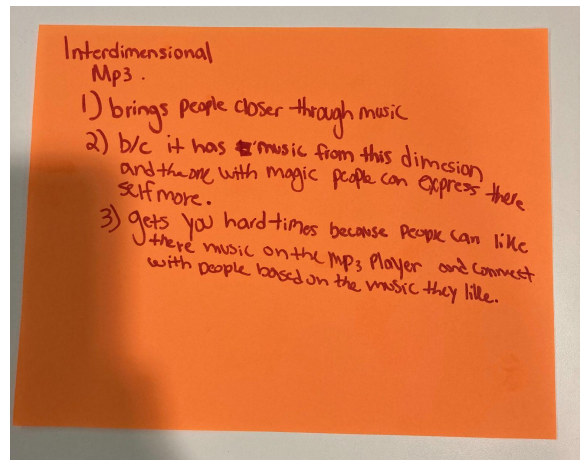 Interdimensional
Mp3.
1) brings people closer through music
2) b/c it has music from this dimesion
and the one with magic people can express there
self more.
3) gets you hard times because people can like
there music on the Mp3 Player and connect
with people based on the music they like.